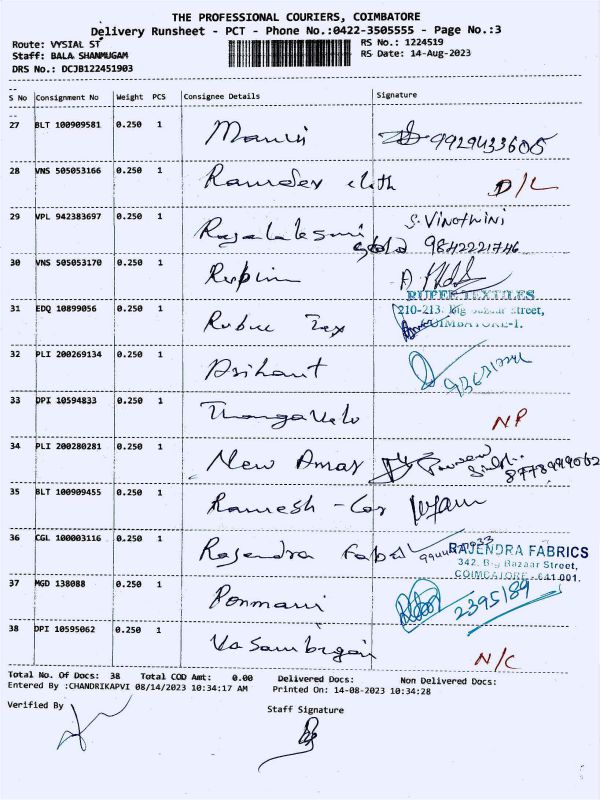 THE PROFESSIONAL COURIERS, COIMBATORE
Delivery Runsheet - PCT - Phone No.:0422-3505555 - Page No.:3
Route: VYSIAL ST RS No.: 1224519
Staff: BALA SHANMUGAM RS Date: 14-Aug-2023
DRS No.: DCJB122451903
S No Consignment No Weight PCS Consignee Details Signature
27 BLT 100909581 0.250 1 Mauri 9929433605
28 VNS 505053166 0.250 1 Ramdev cloth D/L
29 VPL 942383697 0.250 1 Rajalakshmi gold S. Vinothini
9842221746
30 VNS 505053170 0.250 1
RUPEE TEXTILES
210-213, Big Bazaar Street,
COIMBATORE-1.
31 EDQ 10899056 0.250 1 Rubee Tex
32 PLI 200269134 0.250 1 Arihant
33 DPI 10594833 0.250 1 Thangavelu NP
34 PLI 200280281 0.250 1 New Amar
35 BLT 100909455 0.250 1 Ramesh
36 CGL 100003116 0.250 1 Rajendra Fab
RAJENDRA FABRICS
342, Big Bazaar Street,
COIMBATORE - 641 001.
37 MGD 138088 0.250 1 Ponmani 2395189
38 DPI 10595062 0.250 1 N/C
Total No. Of Docs: 38 Total COD Amt: 0.00 Delivered Docs: Non Delivered Docs:
Entered By :CHANDRIKAPVI 08/14/2023 10:34:17 AM Printed On: 14-08-2023 10:34:28
Verified By
Staff Signature